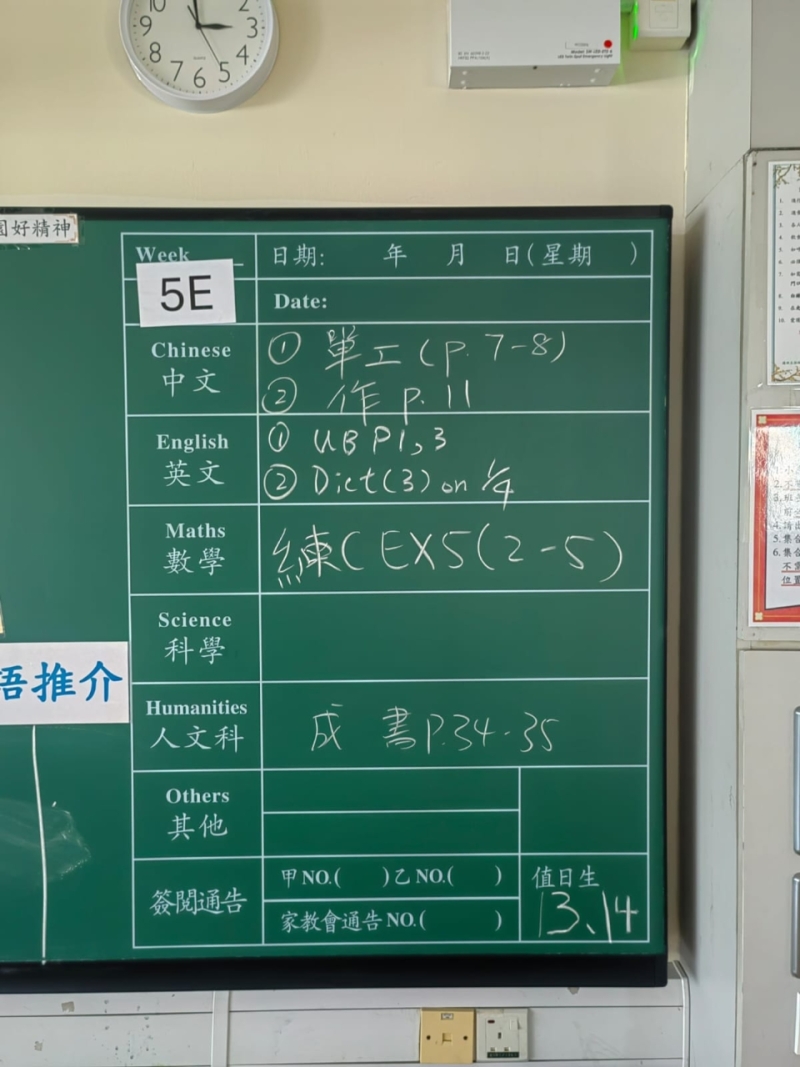 10 2
9 3
8 4
7 6 5
園好精神
Week
日期: 年 月 日(星期 )
5E
Date:
Chinese
中文
① 單工(p. 7-8)
② 作 p. 11
English
英文
① UB P1,3
② Dict(3) on 1/4
Maths
數學
練( EX5(2-5)
Science
科學
Humanities
人文科
成 書P.34-35
語推介
Others
其他
簽閱通告
甲NO.( )乙NO.( )
家教會通告NO.( )
值日生
13、14